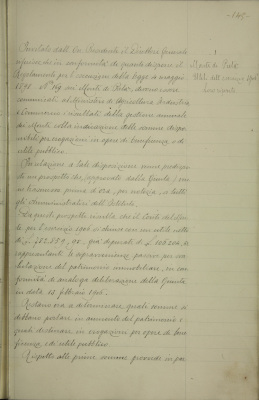 - 145 -
Invitato dall' On. Presidente il Direttore Generale
riferisce che in conformità di quanto dispone il
Regolamento per l'esecuzione della legge 4 maggio
1898 N.° 169 sui Monti di Pietà, devono essere
comunicati al Ministero di Agricoltura Industria
e Commercio i risultati della gestione annuale
dei Monti colla indicazione delle somme dispo-
nibili per erogazioni in opere di beneficenza e di
utilità pubblica.
In relazione a tale disposizione venne predispo-
sto un prospetto che (approvato dalla Giunta)
prima d'ora, per notizia, a tutti
gli Amministratori dell' Istituto.
Da questo prospetto risulta che il Conto del Mon-
te per l'esercizio 1906 si chiuse con un utile netto
di
rappresentante le sopravvenienze passive per sva-
lutazione del patrimonio immobiliare, in con-
formità di analoga deliberazione della Giunta
in data febbraio 1906.
Restava ora a determinare quali somme si
debbano portare in aumento del patrimonio e
quali destinare in erogazioni per opere di bene
ficenza, e di utilità pubblica.
Rispetto alle prime conviene procedere in pro
Monte di Pietà
Utili dell'esercizio 1906